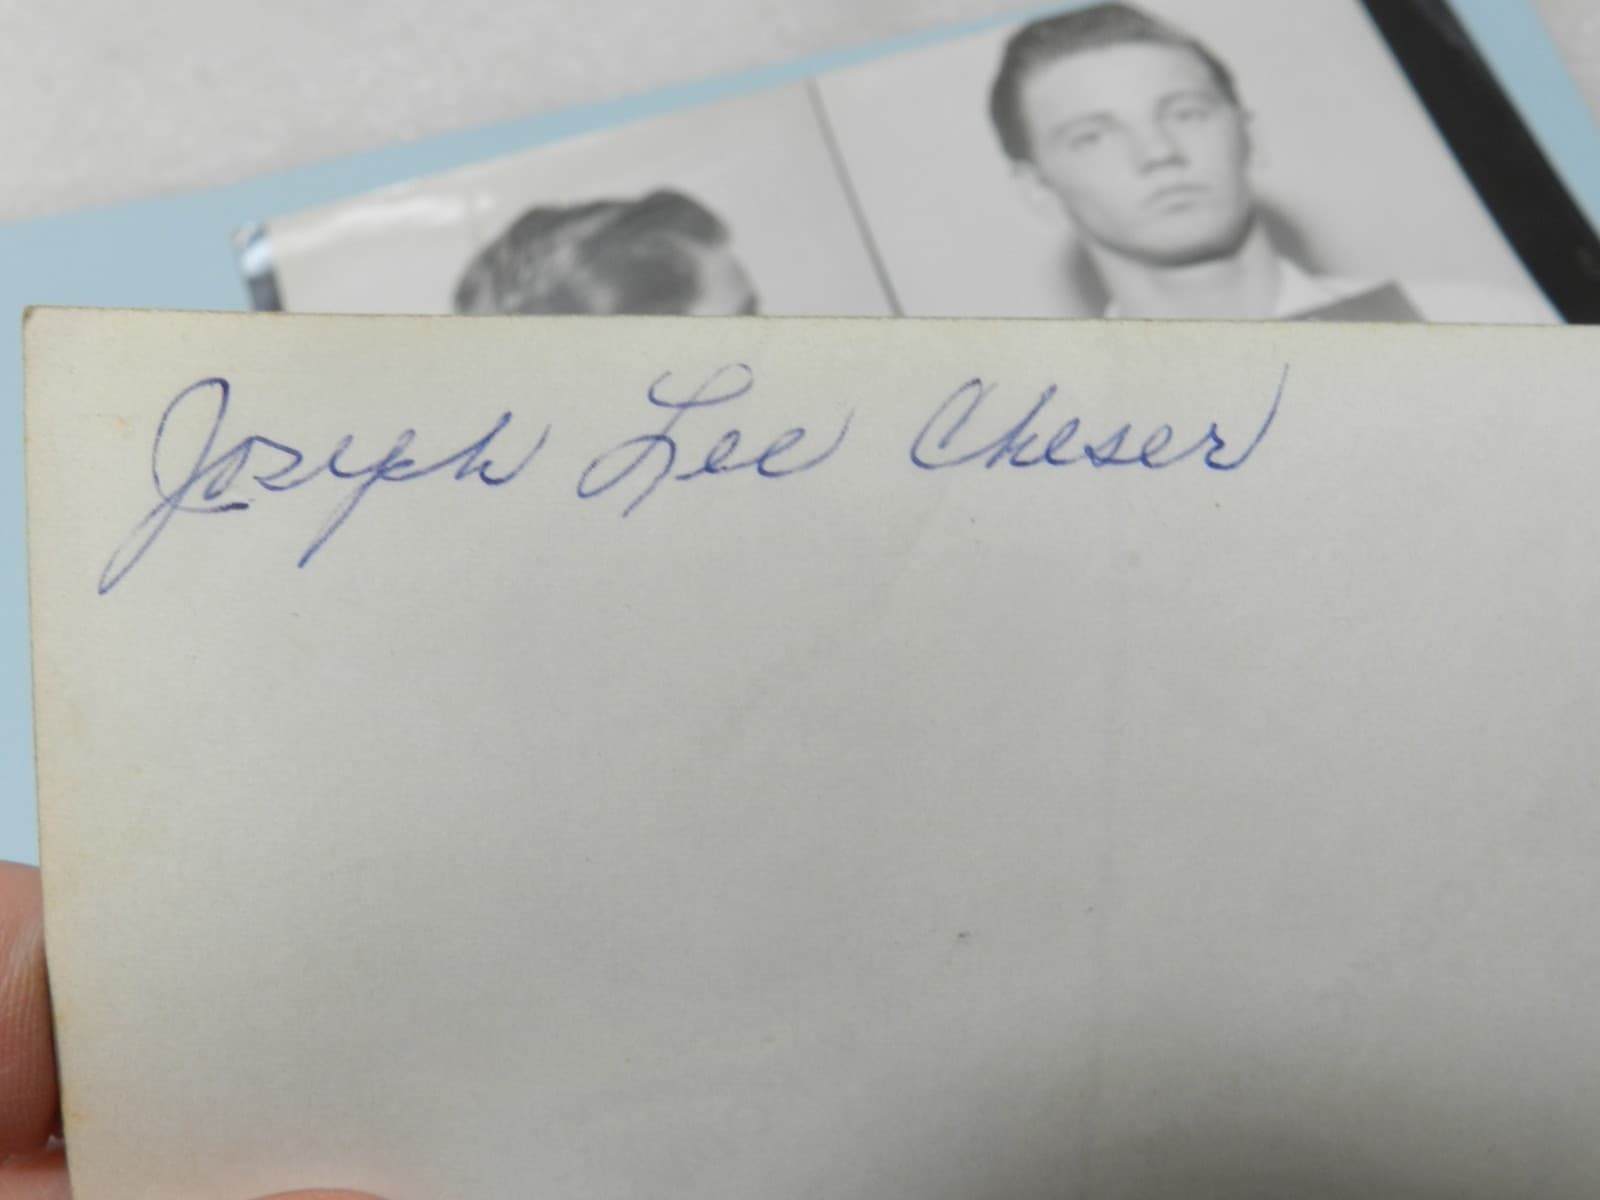 Joseph Lee Cheser